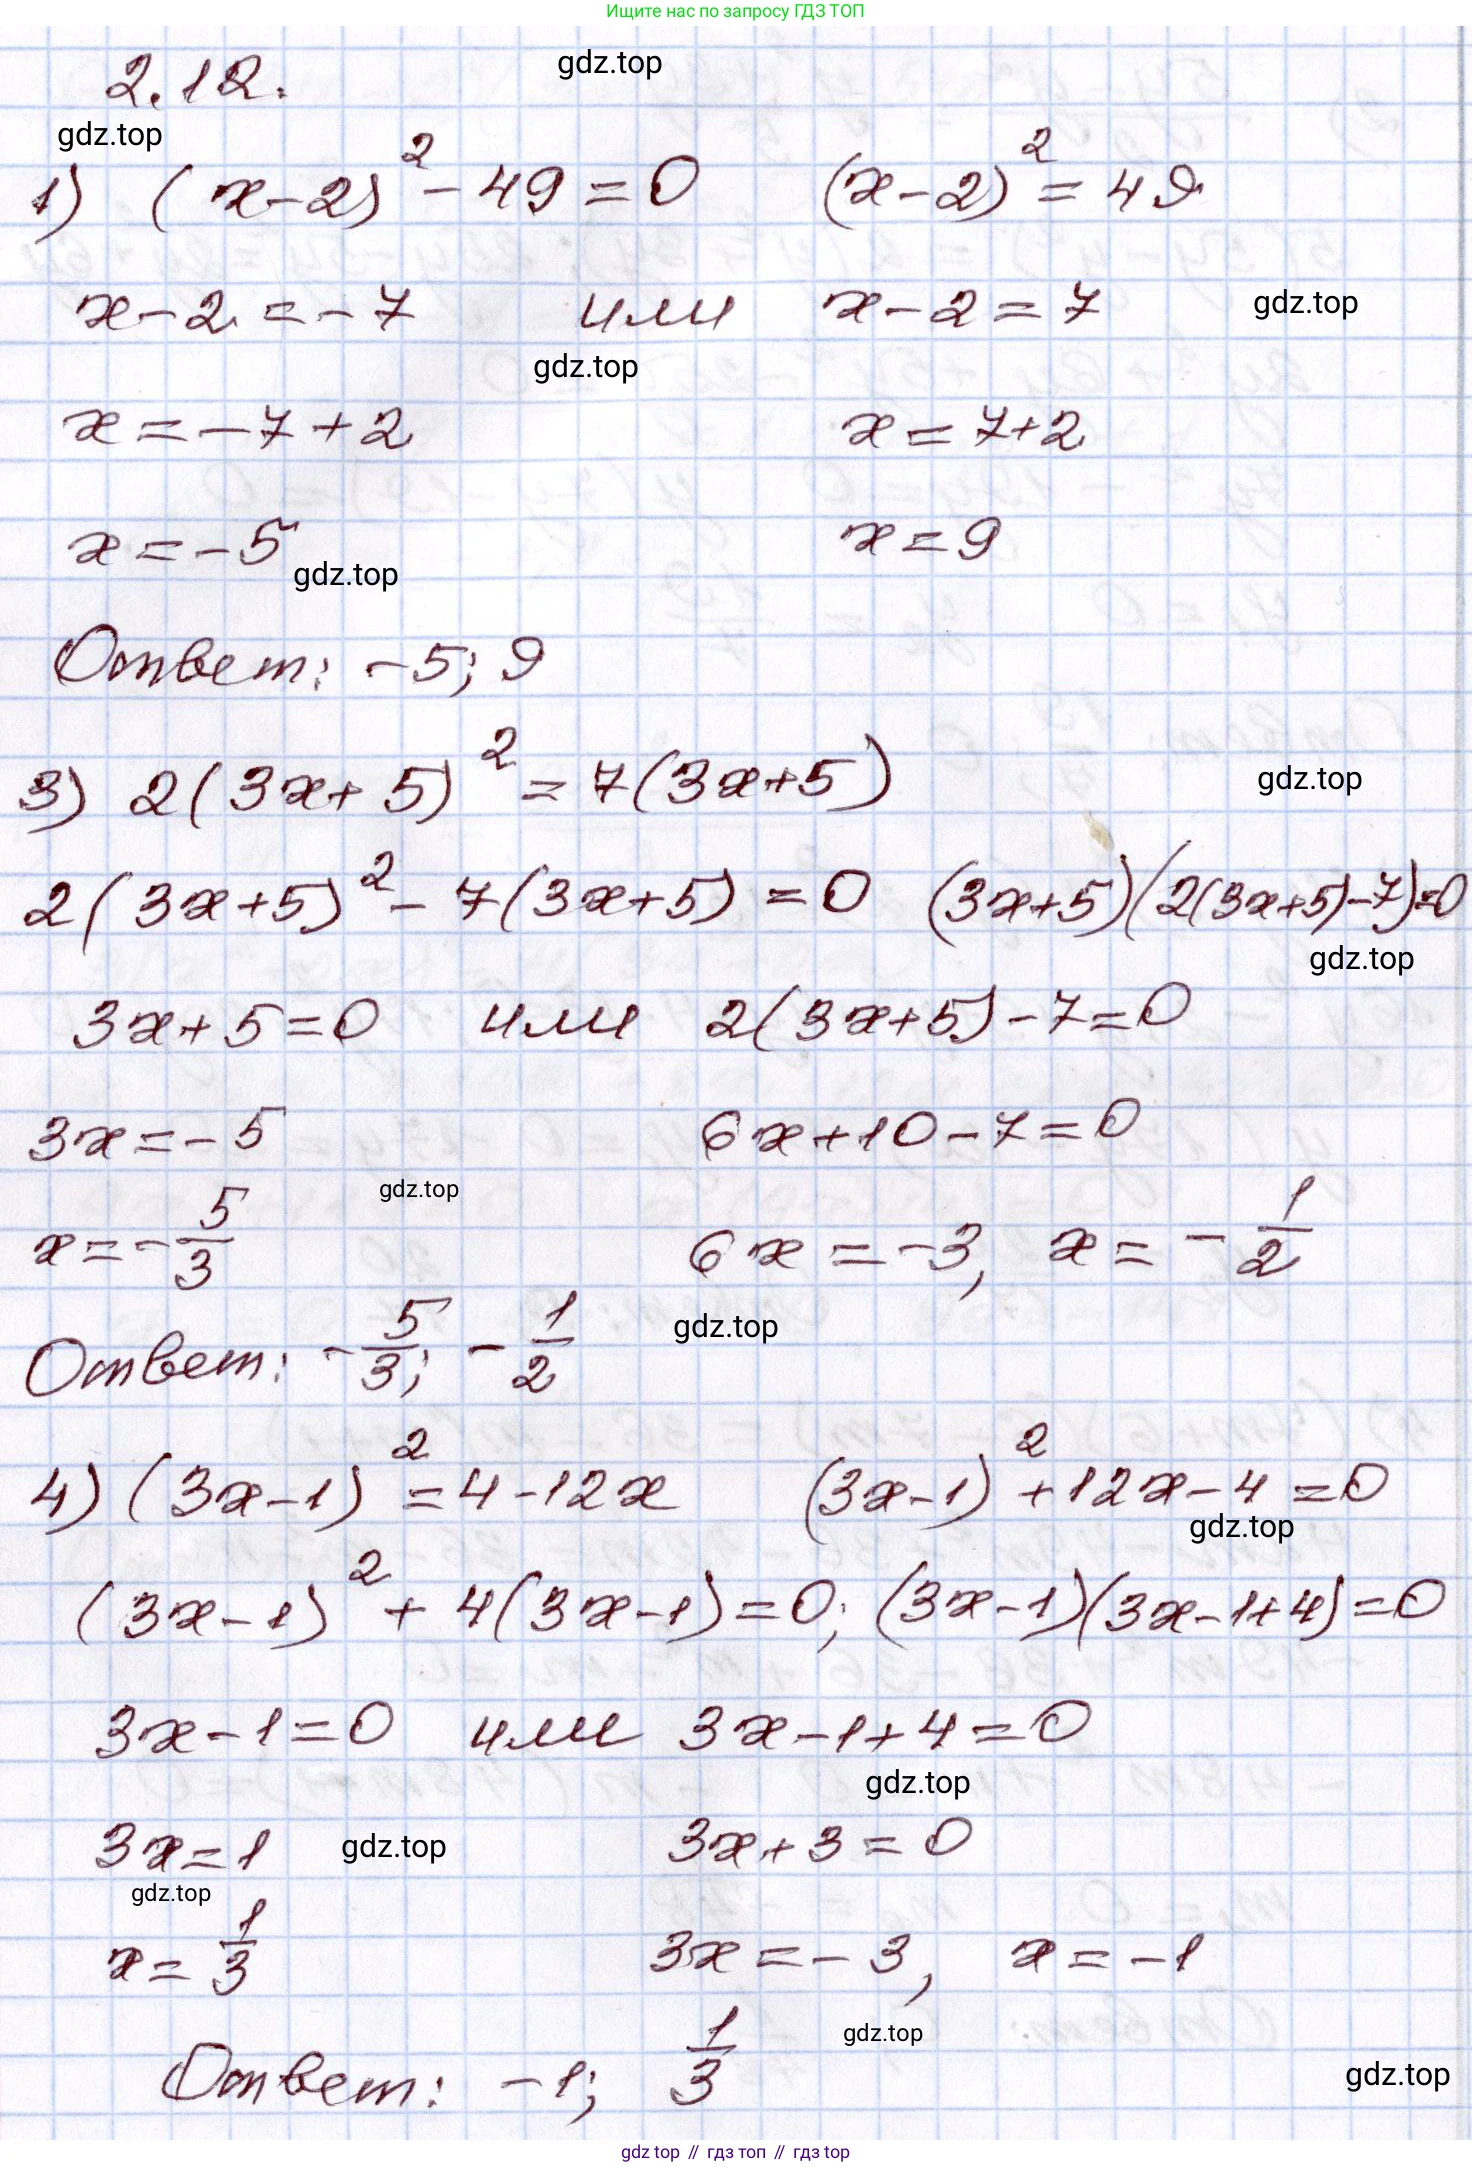 Ищите нас по запросу ГДЗ ТОП
2.12.
gdz.top
gdz.top
1) (x-2)² - 49 = 0 (x-2)² = 49
x-2 = -7 или x-2 = 7
gdz.top
gdz.top
x = -7+2 x = 7+2
x = -5 x = 9
gdz.top
Ответ: -5; 9
3) 2(3x+5)² = 7(3x+5)
gdz.top
2(3x+5)² - 7(3x+5) = 0 (3x+5)(2(3x+5)-7)=0
gdz.top
3x+5=0 или 2(3x+5)-7=0
3x=-5 6x+10-7=0
gdz.top
x=-5/3 6x=-3, x=-1/2
Ответ: -5/3; -1/2
gdz.top
4) (3x-1)² = 4-12x (3x-1)² +12x-4=0
gdz.top
(3x-1)² + 4(3x-1)=0; (3x-1)(3x-1+4)=0
3x-1=0 или 3x-1+4=0
gdz.top
3x=1 3x+3=0
gdz.top
gdz.top
x=1/3 3x=-3, x=-1
gdz.top
Ответ: -1; 1/3
gdz.top
gdz top // гдз топ // гдз top